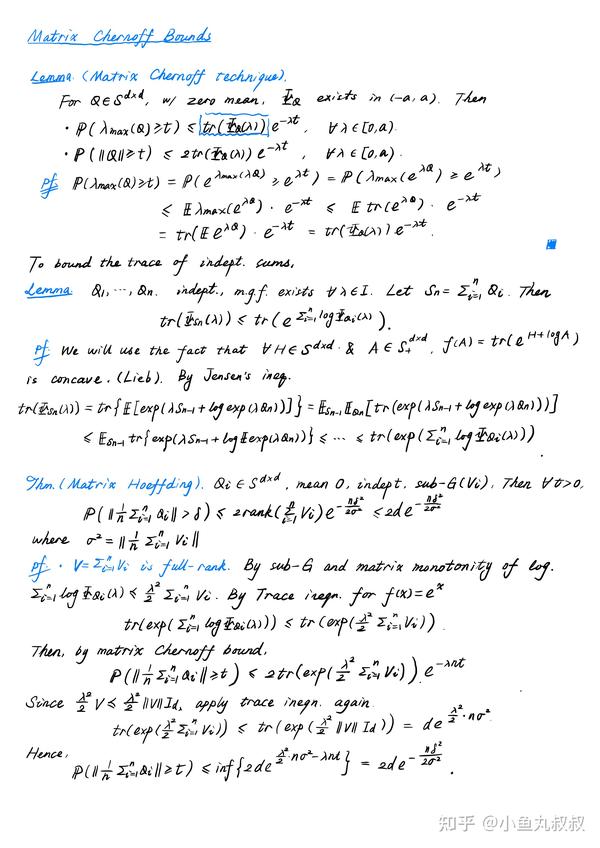 Matrix Chernoff Bounds
Lemma. (Matrix Chernoff technique).
For Q∈S^{d×d}, w/ zero mean, Ψ_Q exists in (-a,a). Then
· ℙ(λmax(Q)≥t) ≤ tr(Ψ_Q(λ)) e^{-λt}, ∀λ∈[0,a).
· ℙ(‖Q‖≥t) ≤ 2tr(Ψ_Q(λ)) e^{-λt}, ∀λ∈[0,a).
pf. ℙ(λmax(Q)≥t) = ℙ(e^{λmax(λQ)} ≥ e^{λt}) = ℙ(λmax(e^{λQ}) ≥ e^{λt})
≤ 𝔼λmax(e^{λQ}) · e^{-λt} ≤ 𝔼 tr(e^{λQ}) · e^{-λt}
= tr(𝔼e^{λQ}) · e^{-λt} = tr(Ψ_Q(λ)) e^{-λt}.
To bound the trace of indept. sums,
Lemma. Q₁,⋯,Qn. indept., m.g.f. exists ∀λ∈I. Let Sn = Σ_{i=1}^n Qi. Then
tr(Ψ_{Sn}(λ)) ≤ tr(e^{Σ_{i=1}^n logΨ_{Qi}(λ)}).
pf. We will use the fact that ∀H∈S^{d×d} & A∈S_+^{d×d}, f(A) = tr(e^{H+logA})
is concave. (Lieb). By Jensen's ineq.
tr(Ψ_{Sn}(λ)) = tr{𝔼[exp(λS_{n-1}+logexp(λQn))]} = 𝔼_{S_{n-1}}𝔼_{Qn}[tr(exp(λS_{n-1}+logexp(λQn)))]
≤ 𝔼_{S_{n-1}} tr{exp(λS_{n-1}+log𝔼exp(λQn))} ≤ ⋯ ≤ tr(exp(Σ_{i=1}^n logΨ_{Qi}(λ))).
Thm. (Matrix Hoeffding). Qi∈S^{d×d}, mean 0, indept. sub-G(Vi), Then ∀t>0,
ℙ(‖1/n Σ_{i=1}^n Qi‖>δ) ≤ 2rank(Σ_{i=1}^n Vi) e^{-nδ²/2σ²} ≤ 2de^{-nδ²/2σ²}
where σ² = ‖1/n Σ_{i=1}^n Vi‖
pf. · V=Σ_{i=1}^n Vi is full-rank. By sub-G and matrix monotonity of log.
Σ_{i=1}^n logΨ_{Qi}(λ) ≼ λ²/2 Σ_{i=1}^n Vi. By Trace ineqn. for f(x)=e^x
tr(exp(Σ_{i=1}^n logΨ_{Qi}(λ))) ≤ tr(exp(λ²/2 Σ_{i=1}^n Vi)).
Then, by matrix Chernoff bound,
ℙ(‖1/n Σ_{i=1}^n Qi‖≥t) ≤ 2tr(exp(λ²/2 Σ_{i=1}^n Vi)) e^{-λnt}
Since λ²/2 V ≼ λ²/2 ‖V‖Id, apply trace ineqn. again.
tr(exp(λ²/2 Σ_{i=1}^n Vi)) ≤ tr(exp(λ²/2 ‖V‖Id)) = de^{λ²/2·nσ²}
Hence,
ℙ(‖1/n Σ_{i=1}^n Qi‖≥t) ≤ inf{2de^{λ²/2·nσ²-λnt}} = 2de^{-nδ²/2σ²}.
知乎 @小鱼丸叔叔